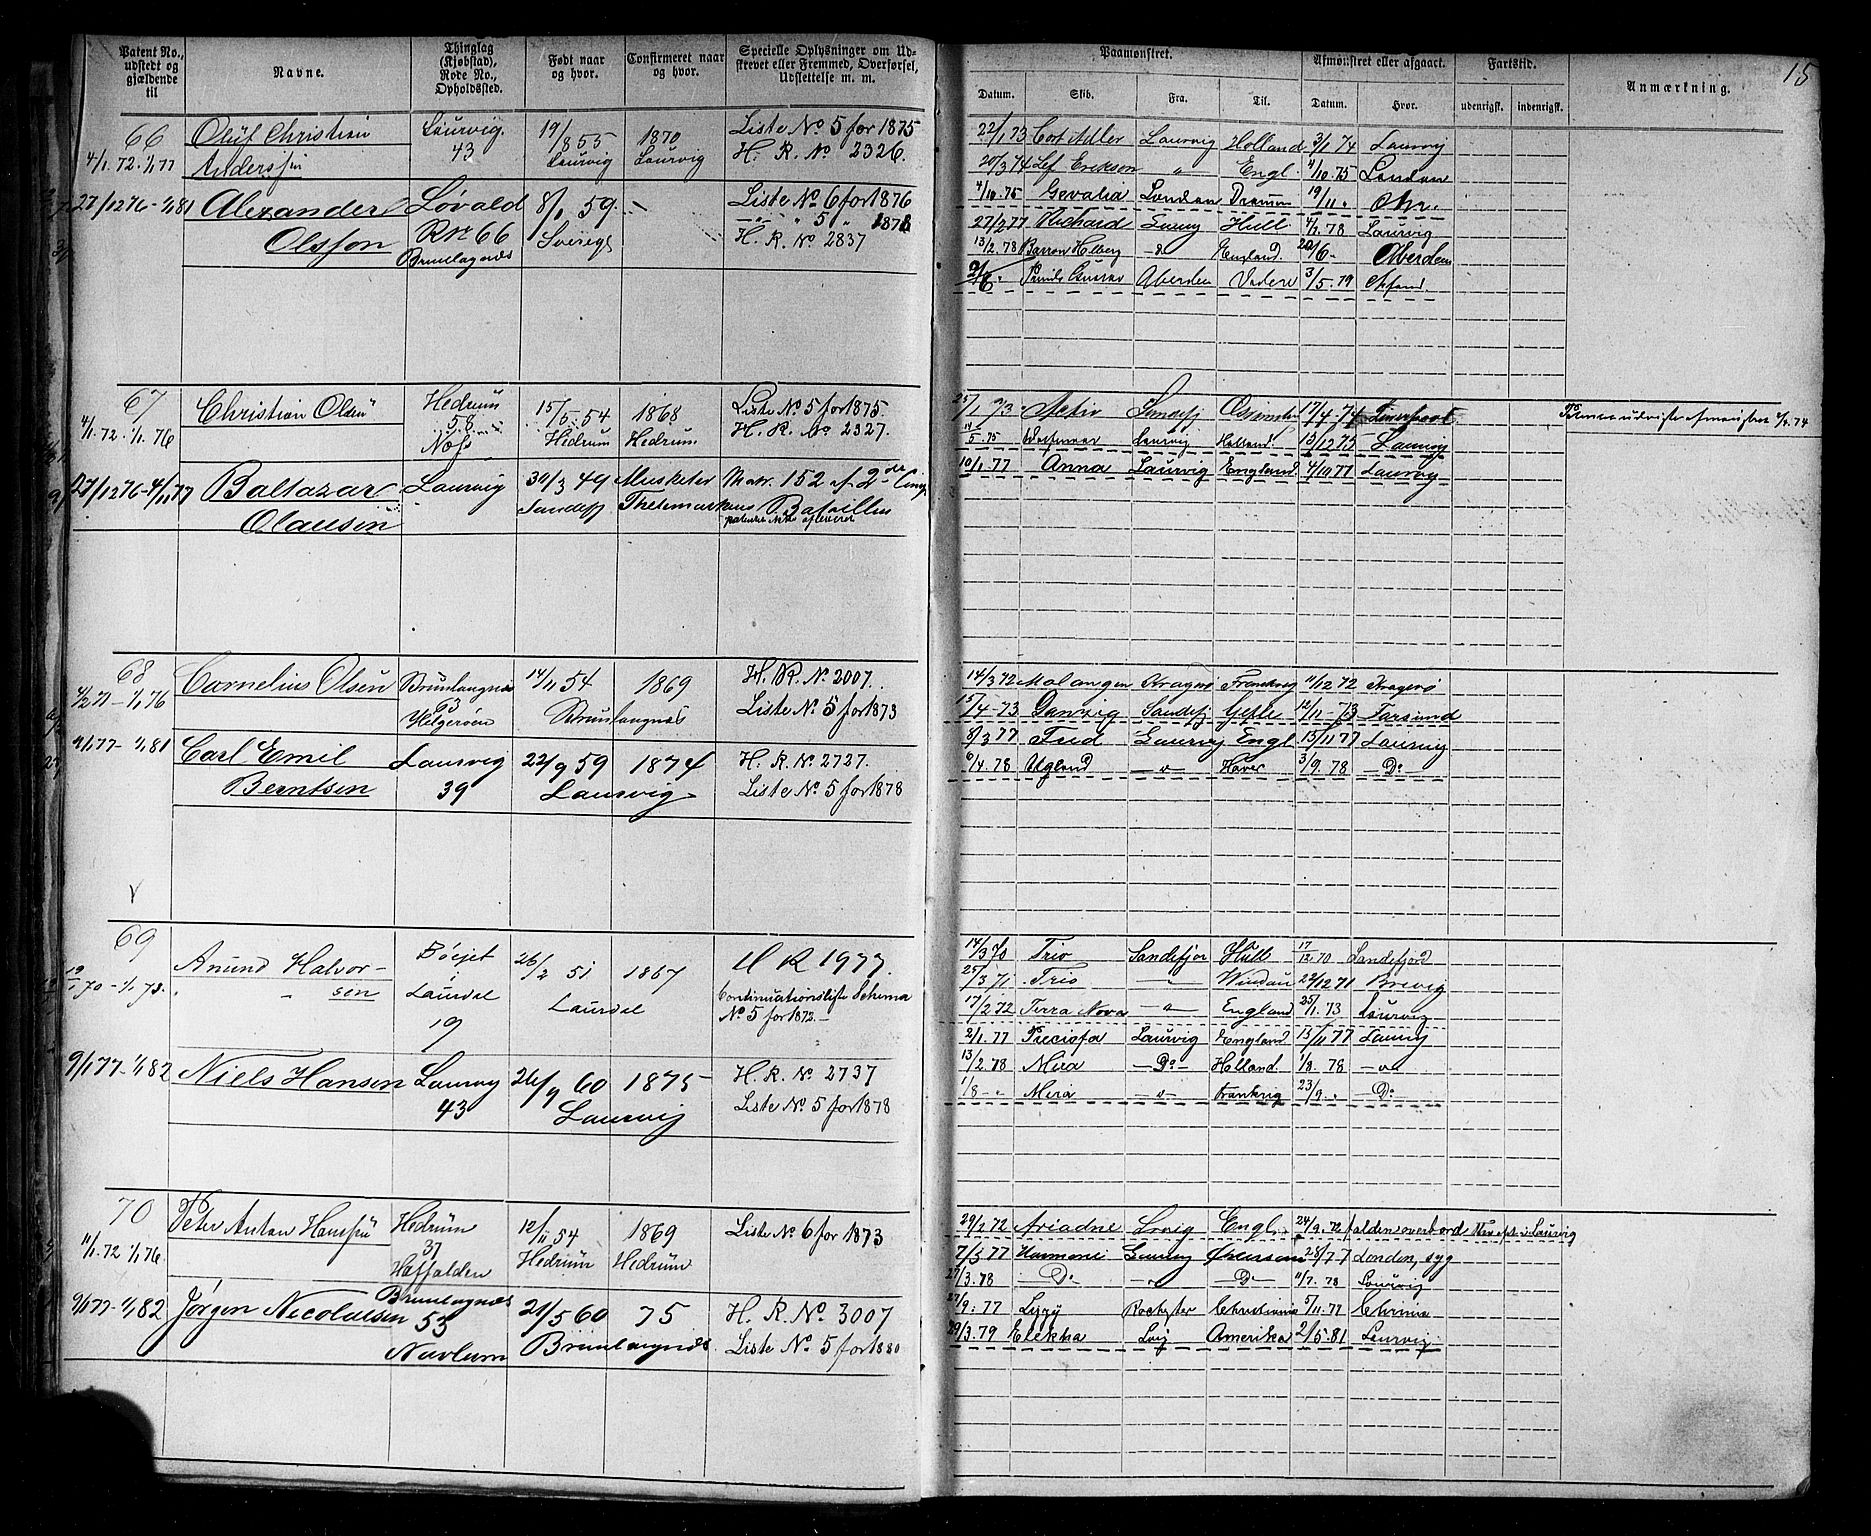 15
Patent No., udstedt og gjældende til
Navne.
Thinglag (Kjøbstad), Rode No., Opholdssted.
Født naar og hvor.
Confirmeret naar og hvor.
Specielle Oplysninger om Udskrevet eller Fremmed, Overførsel, Udslettelse m. m.
Paamønstret.
Datum. Skib. Fra. Til.
Afmønstret eller afgaaet.
Datum. Hvor.
Fartstid.
udenrigsk. indenrigsk.
Anmærkning.
66 Oluf Christian Laurvig. 19/8 55 1870 Liste No 5 for 1875
4/1.72.-1/1 77 Anderssen 43 Laurvig Laurvig H. R. No 2326.
27/12 76-1/1 81 Alexander Løvald 8/1 59. Liste No 6 for 1876
Olsson R No 66 Sverige - " - " 5 " 1878
Brunlagnæs H. R. No 2837
22/1 73 Cort Adler Laurvig Holland 3/1 74 Laurvig
20/3 74 Lef Erikson " Engl. 4/10.75 London
4/10.75 Gevalia London Drammen 19/11 "
27/2 77 Richard Laurvig Hull 4/1.78 Laurvig
13/2.78 Barron Holberg " England. 20/6 - Aberdeen
Gustav Aberdeen 3/5.79
67 Christian Olsen Hedrum 15/5.54 1868 Liste No 5 for 1875.
4/1.72.-1/1.76 58 Hedrum Hedrum H. R. No 2327.
Næs
27/12 76-4/11 77 Baltazar Laurvig 30/3 49 Musketer Matr. 152 af 2den
Olausen Sandefj Thelemarkens Batallion
Activ Sandefj 17/4.74
5.75 Laurvig Holland. 13/12 75 Laurvig
10/1.77 Anna Laurvig England 4/10 77 Laurvig
68 Cornelius Olsen Brunlangnæs 14/11 54 1869 H. R. No 2007.
4/2 71-1/1 76 93 Brunlangnæs Liste No 5 for 1873
Helgeroen
4/1 77-1/1 81 Carl Emil Laurvig 22/9 59 1874 H. R. No 2727.
Berntsen 39 Laurvig Liste No 5 for 1878
14/3 72 Malangen Kragerø Frankrig 11/12 72 Kragerø
15/4-73 Danzig Sandefj Gefle 12/11-73 Farsund
8/3 77 Laurvig Engl 15/11 77 Laurvig
6/4.78 Ugland - " - Haver 3/9.78 - Do
69 Anund Halvor- Böejet 26/2 51 1867 H R 1977.
19/1 70-1/1 73. " " sen i Laurdal Continuationsliste Schema
Laurdal No 5 for 1872.-
19
9/1 77-1/1 82 Niels Hansen Laurvig 26/9 60 1875 H. R. No 2737
43 Laurvig Liste No 5 for 1878
14/3 70 Trio Sandefjor Hull 17/12 70 Sandefjord
25/3 71 Trio - " - Windau 22/12 71 Brevig
17/2 72 Terra Nova - " - England 25/1.73 Laurvig
2/1.77 Preciosa Laurvig England 13/11 77 Laurvig
13/2.78 Mira - Do - Holland. 1/8.78 - " -
1/8 - " Mira - " - Frankrig 23/9 " - Do
70 Peter Anton Hanssen Hedrum 12/11 54 1869 Liste No 6 for 1873
11/1.72-1/1 76. 37 Hedrum Hedrum
Haffalden
9/1 77-1/1 82 Jörgen Nicolaisen Brunlagnæs 21/5 60 75 H. R. No 3007
53 Brunlangnæs Liste No 5 for 1880
Navlum
29/1 72 Ariadne Lrvig Engl. 24/9.72 falden overbord
7/3 77 Harmonie Laurvig 28/7.7 London, syg
27/3.78 - Do - - " - - Do - 11/7.78 Laurvig
27/9.77 Lizzy Rochster Christiania 5/11.77 Chrnia
29/3.79 Elektra Lvig Amerika 2/5.81 Laurvig